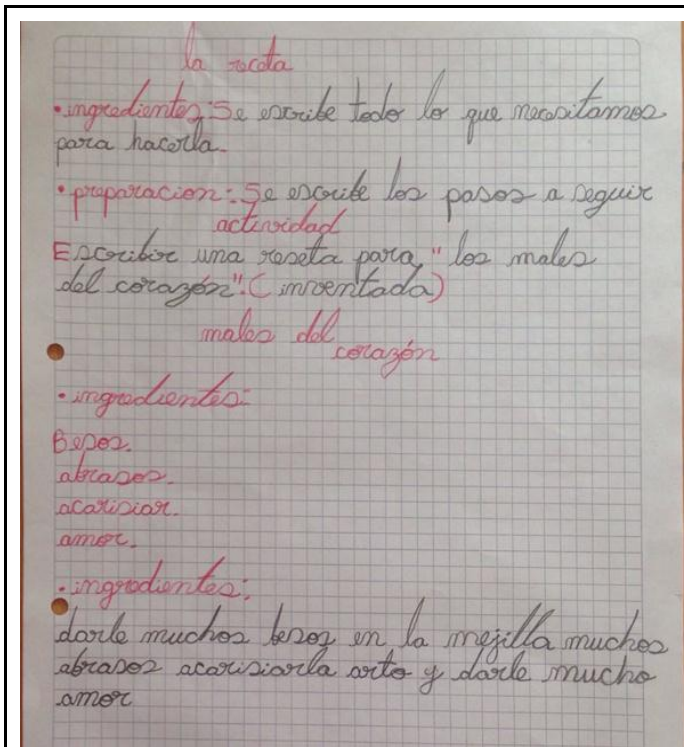 la receta
• ingredientes: Se escribe todo lo que necesitamos
para hacerla.
• preparacion: Se escribe los pasos a seguir
actividad
Escribir una reseta para "los males
del corazón". (inventada)
males del
corazón
• ingredientes:
Besos.
abrasos.
acarisiar.
amor.
• ingredientes:
darle muchos besos en la mejilla muchos
abrasos acarisiarla arto y darle mucho
amor